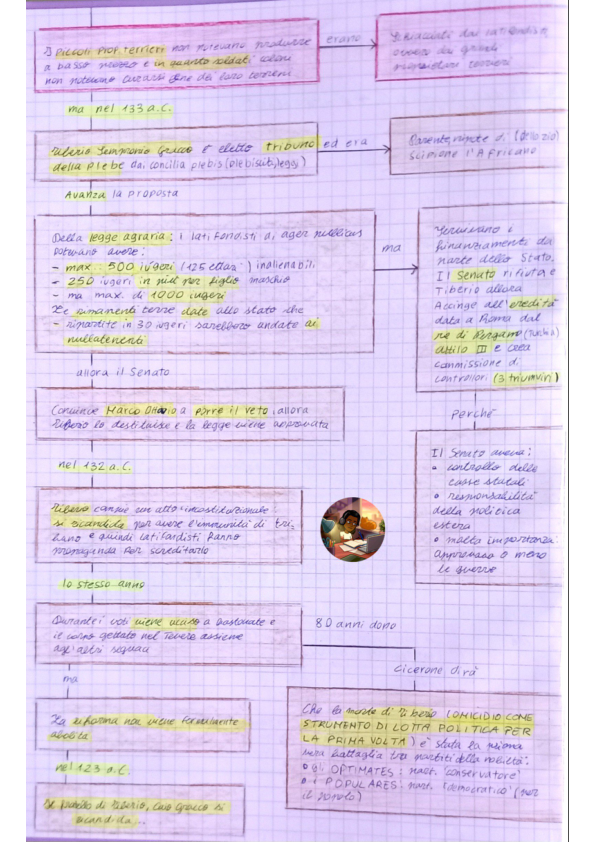 I piccoli prop. terrieri non potevano produrre
a basso prezzo e in quanto soldati
non potevano curarsi bene dei loro terreni
erano
schiacciati dai latifondisti
ovvero dai grandi
proprietari terrieri
ma nel 133 a.C.
Tiberio Sempronio Gracco è eletto tribuno
della plebe dai concilia plebis (plebisciti, leggi)
ed era
nipote di
Scipione l'Africano
Avanza la proposta
Della legge agraria: i latifondisti di ager publicus
potevano avere:
- max. 500 iugeri (125 ettari) inalienabili
- 250 iugeri in più per figlio maschio
- ma max. di 1000 iugeri
Le rimanenti terre date allo stato che
- ripartite in 30 iugeri sarebbero andate ai
nullatenenti
ma
Servivano i
finanziamenti da
parte dello Stato.
Il Senato rifiuta e
Tiberio allora
Accinge all'eredità
data a Roma dal
re di Pergamo (Turchia)
Attilo III e crea
commissione di
controllori (3 triumviri)
allora il Senato
Convince Marco Ottavio a porre il veto, allora
Tiberio lo destituisce e la legge viene approvata
perché
Il Senato aveva:
• controllo delle
casse statali
• responsabilità
della politica
estera
• molta importanza:
approvava o meno
le guerre
nel 132 a.C.
Tiberio compie un atto incostituzionale
si ricandida per avere l'immunità di tri-
buno e quindi latifondisti fanno
propaganda per screditarlo
lo stesso anno
Durante i voti viene ucciso a bastonate e
il corpo gettato nel Tevere assieme
agli altri seguaci
80 anni dopo
Cicerone dirà
Che la morte di Tiberio (OMICIDIO COME
STRUMENTO DI LOTTA POLITICA PER
LA PRIMA VOLTA) è stata la prima
vera battaglia tra partiti della nobiltà:
• gli OPTIMATES: part. "conservatore"
• i POPULARES: part. "democratico" (per
il popolo)
ma
La riforma non viene formalmente
abolita
nel 123 a.C.
Il fratello di Tiberio, Caio Gracco si
candida...